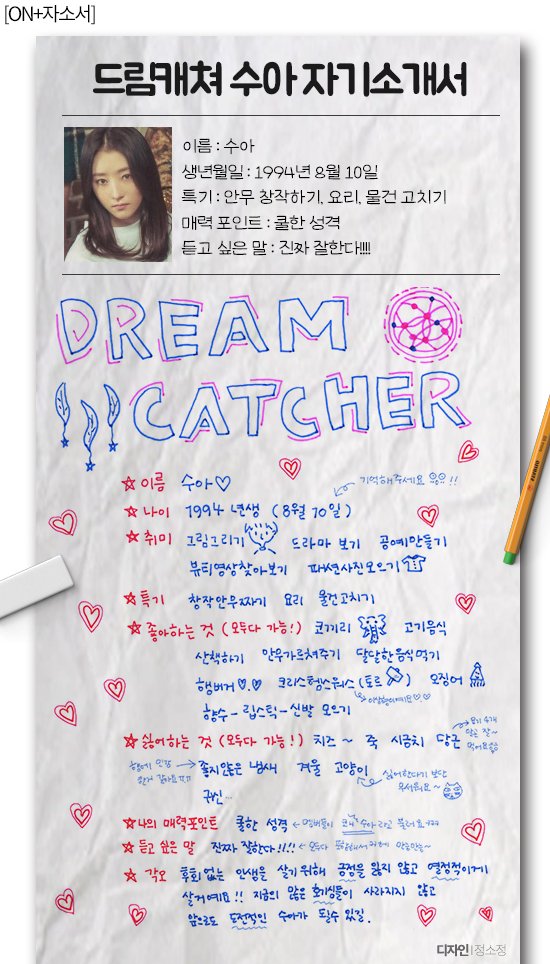 [ON+자소서]
드림캐쳐 수아 자기소개서
이름 : 수아
생년월일 : 1994년 8월 10일
특기 : 안무 창작하기, 요리, 물건 고치기
매력 포인트 : 쿨한 성격
듣고 싶은 말 : 진짜 잘한다!!!!
DREAM
CATCHER
☆ 이름 수아♡ 기억해주세요 !!
☆ 나이 1994 년생 (8월 10일)
☆ 취미 그림그리기 드라마 보기 공예만들기
뷰티영상찾아보기 패션사진모으기
☆ 특기 창작안무짜기 요리 물건고치기
☆ 좋아하는 것 (모두다 가능!) 코끼리 고기음식
산책하기 안무가르쳐주기 달달한음식먹기
햄버거♡.♡ 크리스햄스워스(토르) 오징어
이상형이에요♡.♡
향수 - 립스틱 - 신발 모으기
☆ 싫어하는 것 (모두다 가능!) 치즈 ~ 죽 시금치 당근
좋지않은 냄새 겨울 고양이
싫어한다기 보단
무서워요~
귀신...
☆ 나의 매력포인트 쿨한 성격 ← 멤버들이 수아라고 불러요ㅋㅋㅋ
☆ 듣고 싶은 말 진짜 잘한다!!!!
☆ 각오 후회 없는 인생을 살기위해 긍정을 잃지 않고 열정적이게
살거예요!! 지금의 많은 호기심들이 사라지지 않고
앞으로도 도전적인 수아가 될수 있길.
디자인|정소정